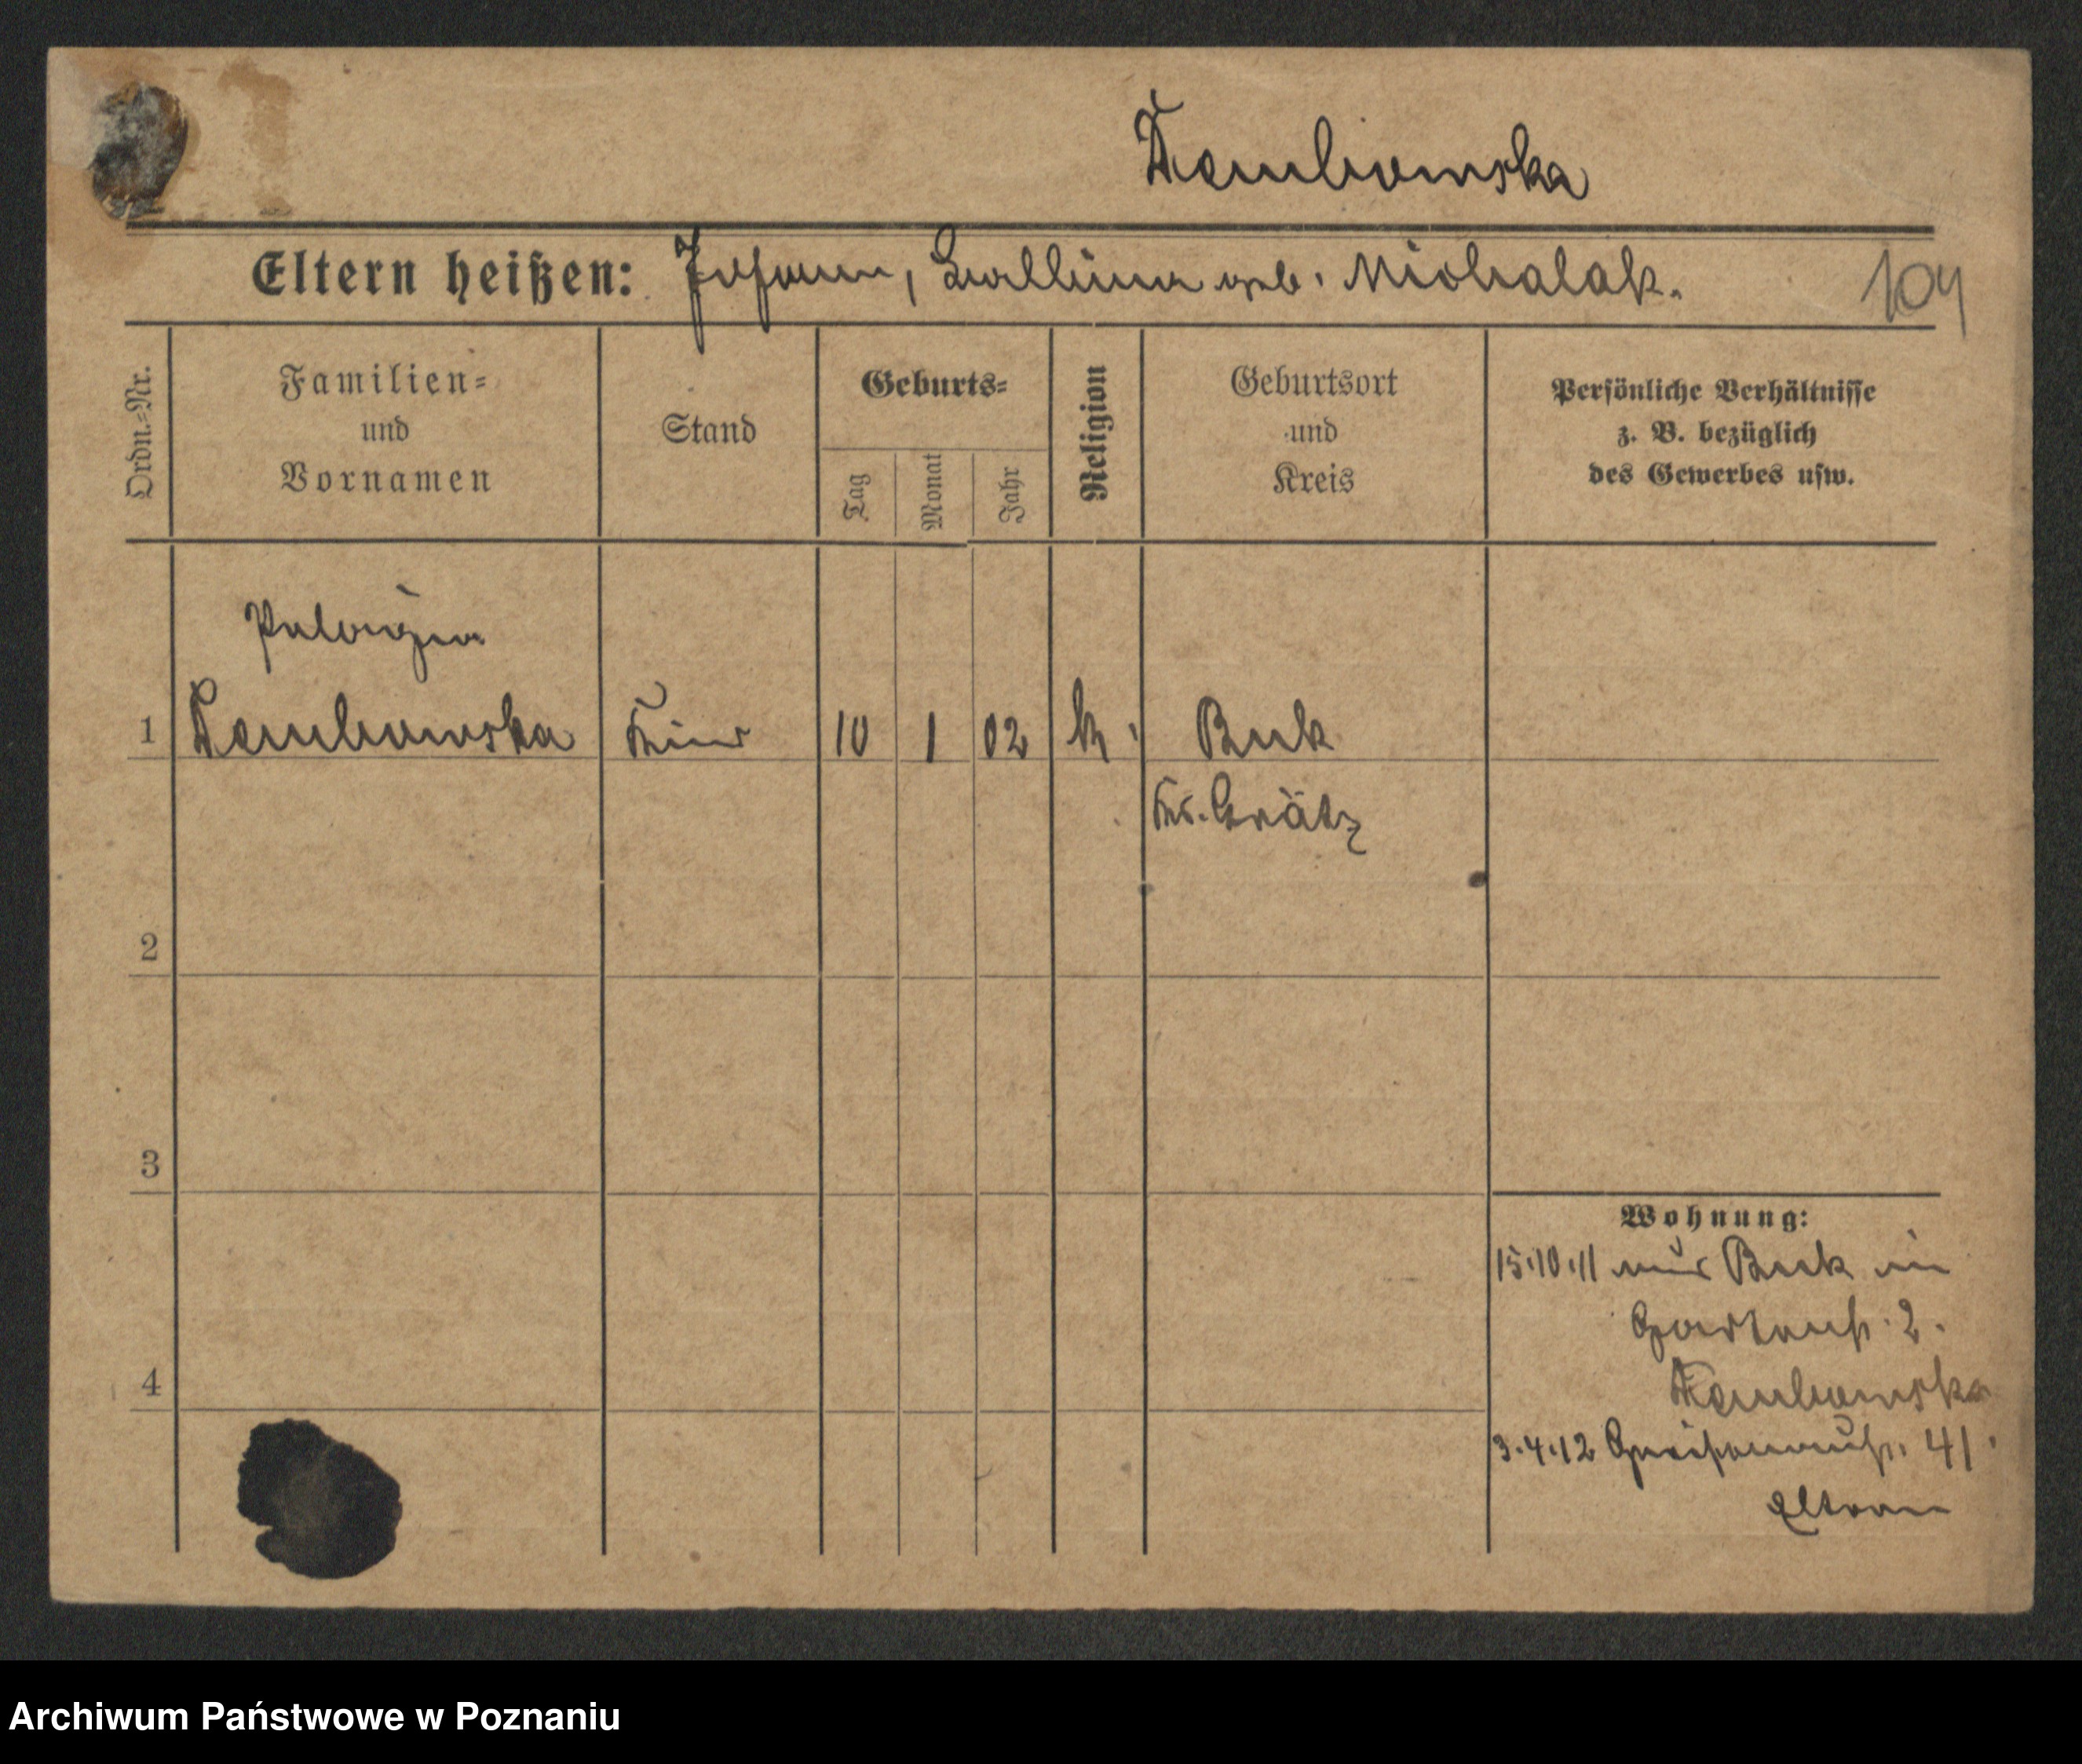 Dembowska
Eltern heißen: Johann, Ludwina geb. Michalak.
104
Ordn.=Nr.
Familien=
und
Vornamen
Stand
Geburts=
Tag
Monat
Jahr
Religion
Geburtsort
und
Kreis
Persönliche Verhältnisse
z. B. bezüglich
des Gewerbes usw.
Pelagia
1 Dembowska Kind 10 1 02 k. Buk
Kr. Grätz
2
3
4
Wohnung:
15.10.11 aus Buk in
Gartenstr. 2.
Dembowska
3.4.12 41.
Eltern
Archiwum Państwowe w Poznaniu